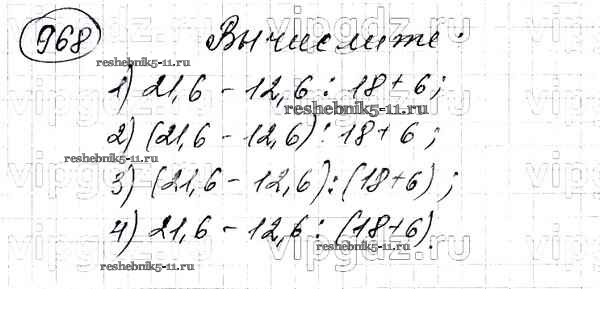 968 Вычислите:
reshebnik5-11.ru
1) 21,6 - 12,6 : 18 + 6;
reshebnik5-11.ru
2) (21,6 - 12,6) : 18 + 6;
reshebnik5-11.ru
3) (21,6 - 12,6) : (18 + 6);
4) 21,6 - 12,6 : (18 + 6).
reshebnik5-11.ru
reshebnik5-11.ru